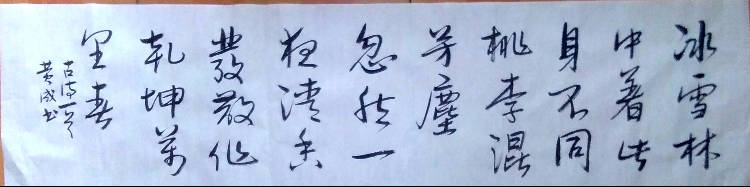 冰雪林
中著此
身不同
桃李混
芳塵
忽然一
夜清香
發散作
乾坤萬
里春
古诗一首
黄成书